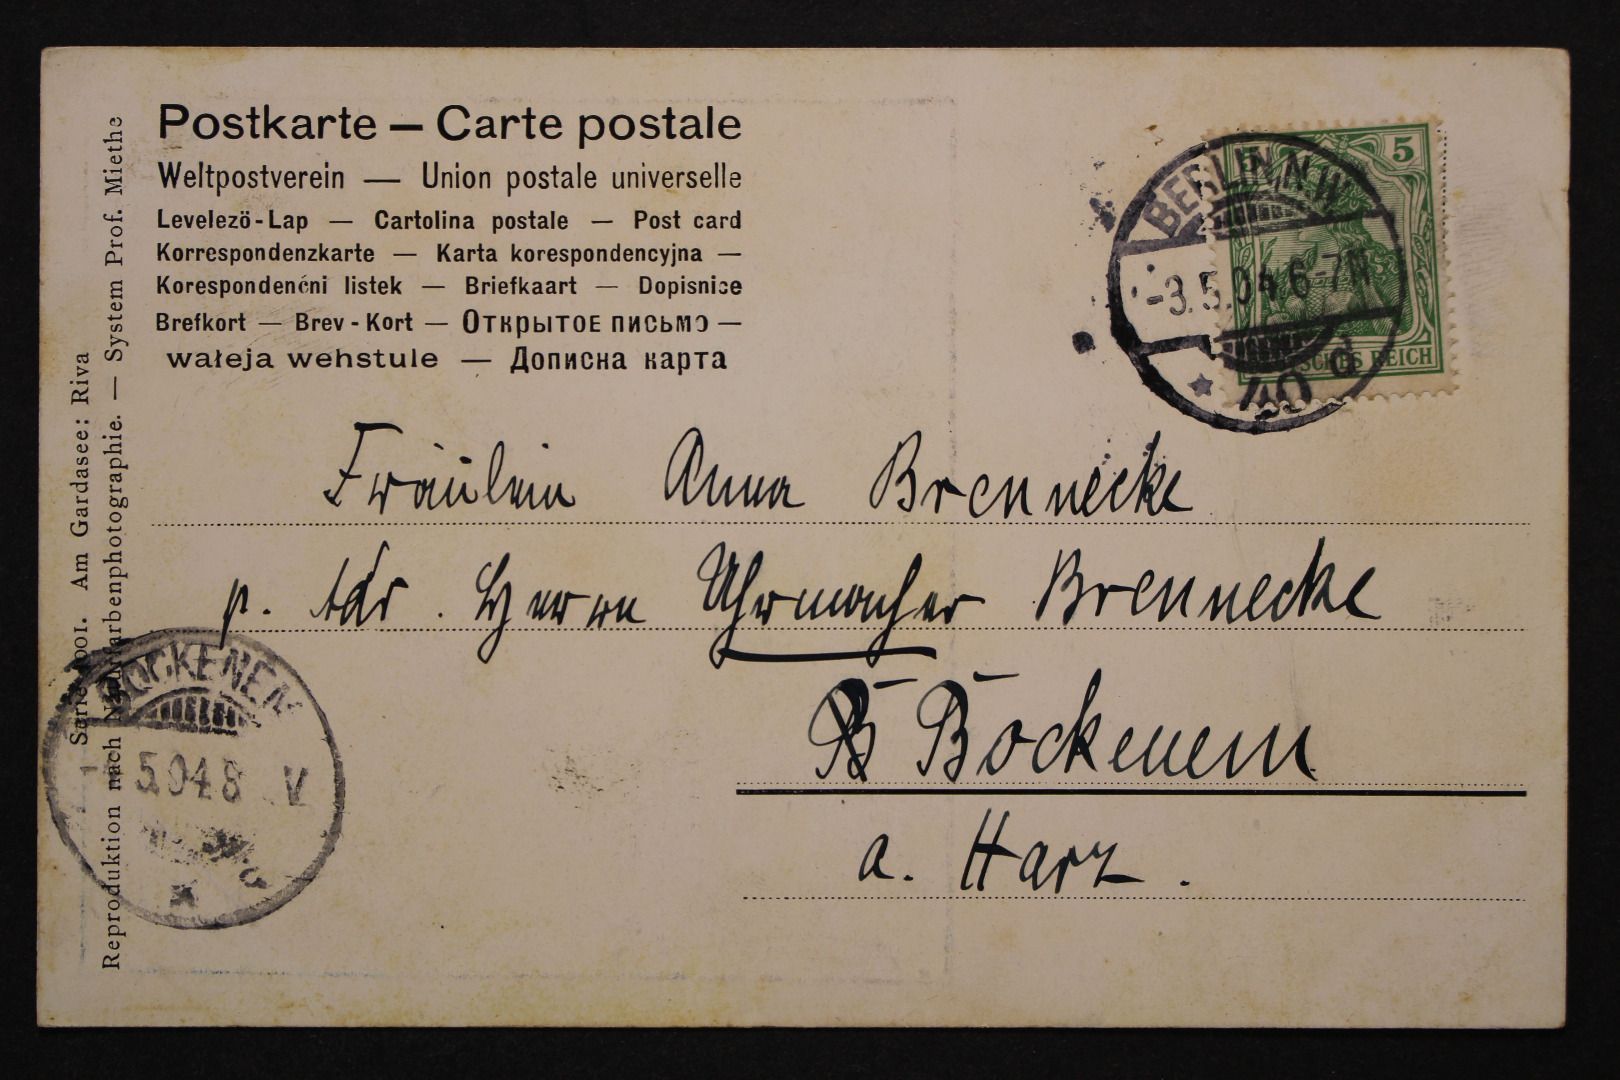 Postkarte — Carte postale
Weltpostverein — Union postale universelle
Levelezö-Lap — Cartolina postale — Post card
Korrespondenzkarte — Karta korespondencyjna —
Korespondenčni listek — Briefkaart — Dopisnice
Brefkort — Brev-Kort — Открытое письмо —
wałeja wehstule — Дописна карта
Serie 1001. Am Gardasee: Riva
Reproduktion nach Naturfarbenphotographie. — System Prof. Miethe
5
BERLIN.N.W
-3.5.04.6-7N
40 d
REICH
Fräulein Anna Brennecke
p. Adr. Herrn Uhrmacher Brennecke
B Bockenem
a. Harz.
BOCKENEM
5.04.8 V